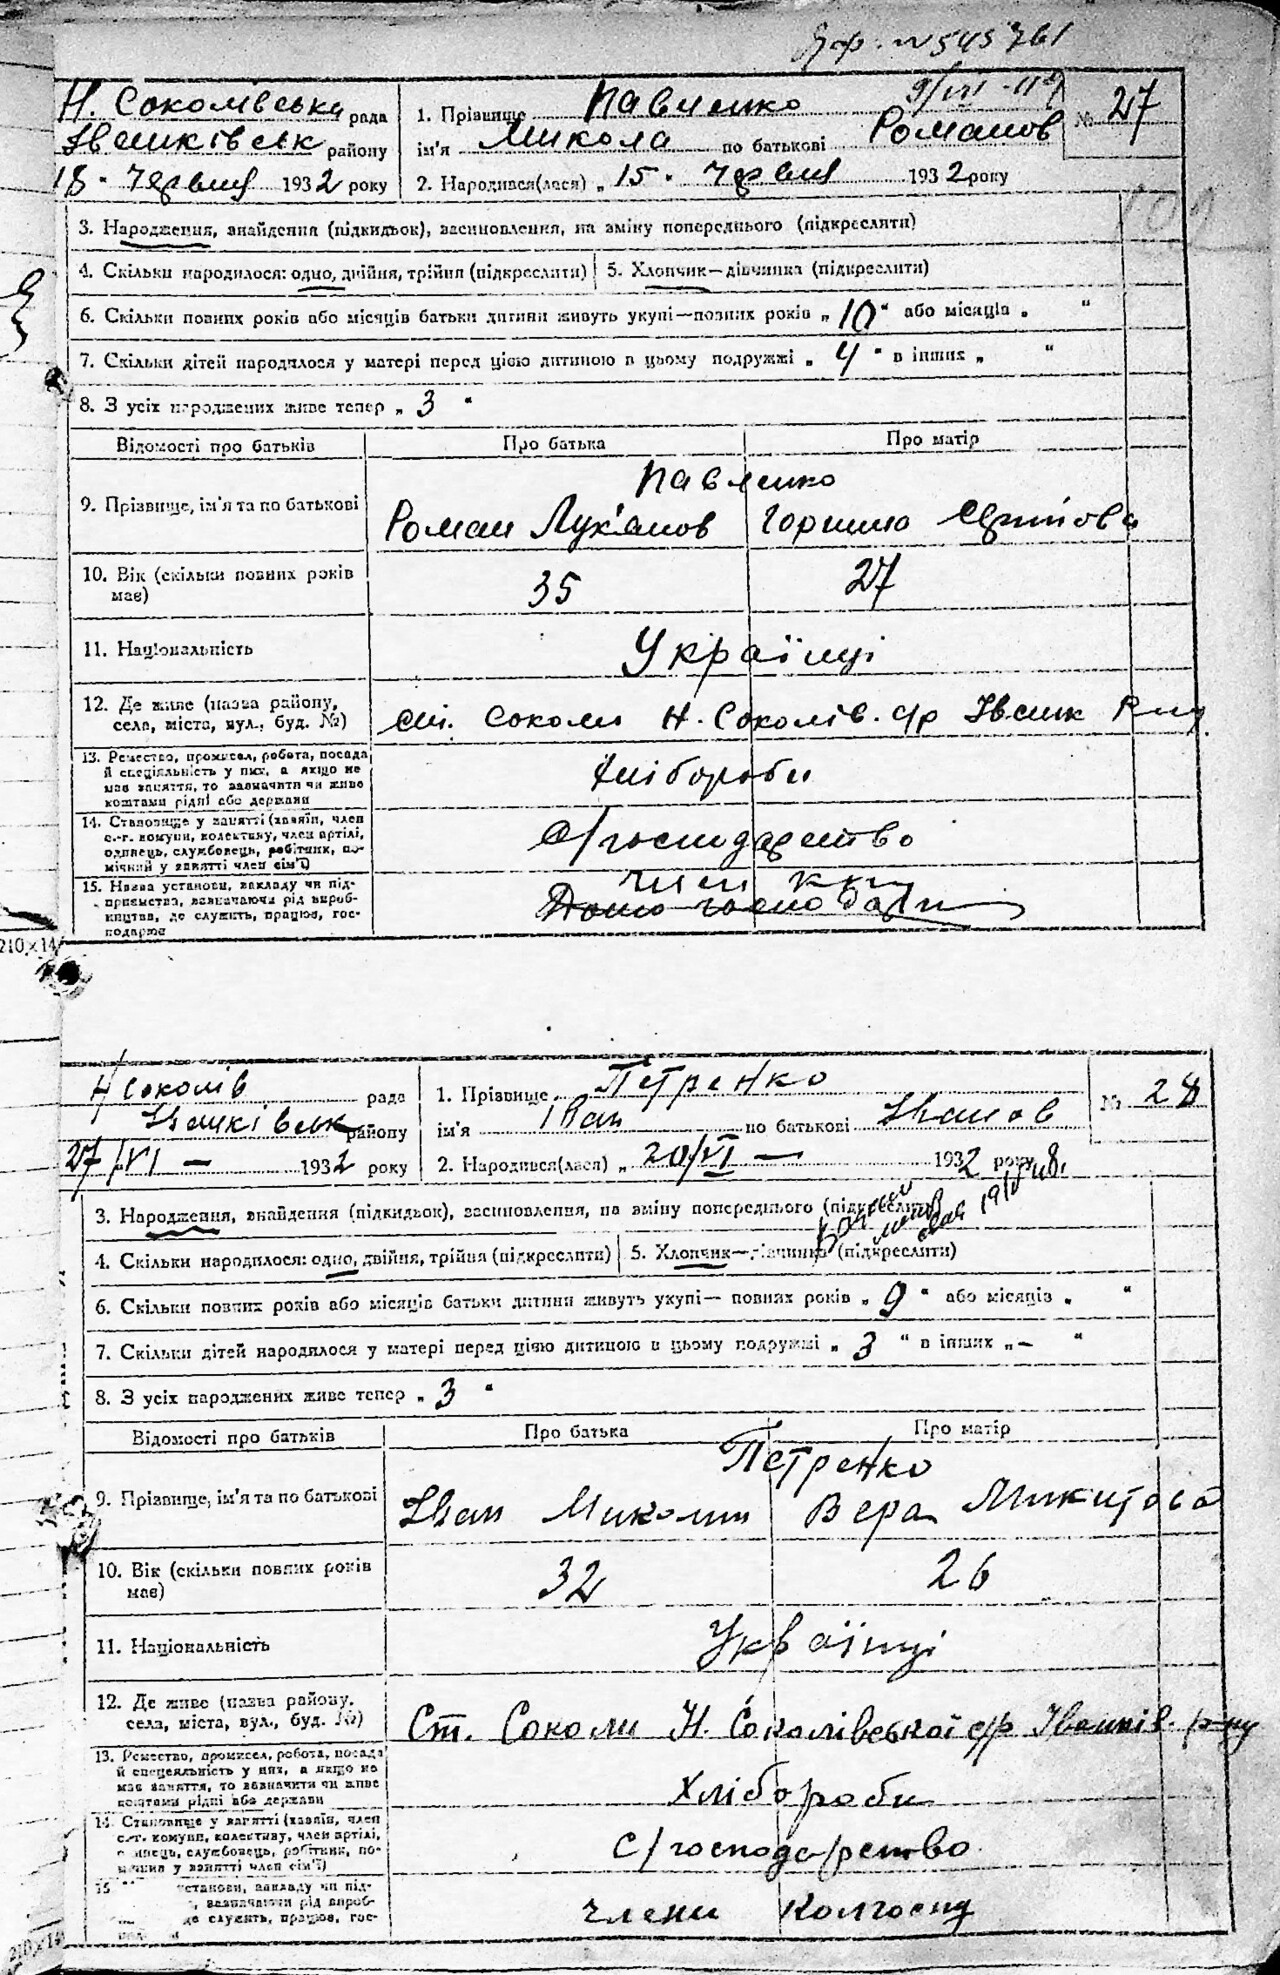 N 545761
Н. Соколівська рада
Івашківськ району
18 " червня 1932 року
1. Прізвище Павленко
ім'я Микола по батькові Романов
2. Народився(лася) „ 15 " червня 1932 року
№ 27
3. Народження, знайдення (підкидьок), засиновлення, на зміну попереднього (підкреслити)
4. Скільки народилося: одно, двійня, трійня (підкреслити) 5. Хлопчик—дівчинка (підкреслити)
6. Скільки повних років або місяців батьки дитини живуть укупі—повних років „ 10 " або місяців „ "
7. Скільки дітей народилося у матері перед цією дитиною в цьому подружжі „ 4 " в інших „ "
8. З усіх народжених живе тепер „ 3 "
Відомості про батьків Про батька Про матір
Павленко
9. Прізвище, ім'я та по батькові Роман Лук'янов
10. Вік (скільки повних років має) 35 27
11. Національність Українці
12. Де живе (назва району, села, міста, вул., буд. №) Соколи Н. Соколів. с/р Івашк р-ну
13. Ремество, промисел, робота, посада
й спеціяльність у них, а якщо не
має заняття, то зазначити чи живе
коштами рідні або держави
Хлібороби
14. Становище у занятті (хазяїн, член
с.-г. комуни, колективу, член артілі,
одинець, службовець, робітник, по-
мічний у занятті член сім'ї)
с/господарство
15. Назва установи, закладу чи під-
приємства, зазначаючи рід вироб-
ництва, де служить, працює, гос-
подарює
210×14
Н Соколів рада
Івашківськ району
27/VI — 1932 року
1. Прізвище Петренко
ім'я Іван по батькові Іванов
2. Народився(лася) „ 20/VI — 1932 року
№ 28
3. Народження, знайдення (підкидьок), засиновлення, на зміну попереднього (підкреслити)
4. Скільки народилося: одно, двійня, трійня (підкреслити) 5. Хлопчик—дівчинка (підкреслити)
6. Скільки повних років або місяців батьки дитини живуть укупі— повних років „ 9 " або місяців „ "
7. Скільки дітей народилося у матері перед цією дитиною в цьому подружжі „ 3 " в інших „ — "
8. З усіх народжених живе тепер „ 3 "
Відомості про батьків Про батька Про матір
Петренко
9. Прізвище, ім'я та по батькові Іван Миколин Вера Микитова
10. Вік (скільки повних років має) 32 26
11. Національність Українці
12. Де живе (назва району, села, міста, вул., буд. №) Ст. Соколи Н. Соколівської с/р Івашків. р-ну
13. Ремество, промисел, робота, посада
й спецеяльність у них, а якщо не
має заняття, то зазначити чи живе
коштами рідні або держави
Хлібороби
14. Становище у занятті (хазяїн, член
с.-г. комуни, колективу, член артілі,
одинець, службовець, робітник, по-
мічний у занятті член сім'ї)
с/господарство
15. установи, закладу чи під-
зазначаючи рід вироб-
де служить, працює, гос-
члени колгоспу
210×14